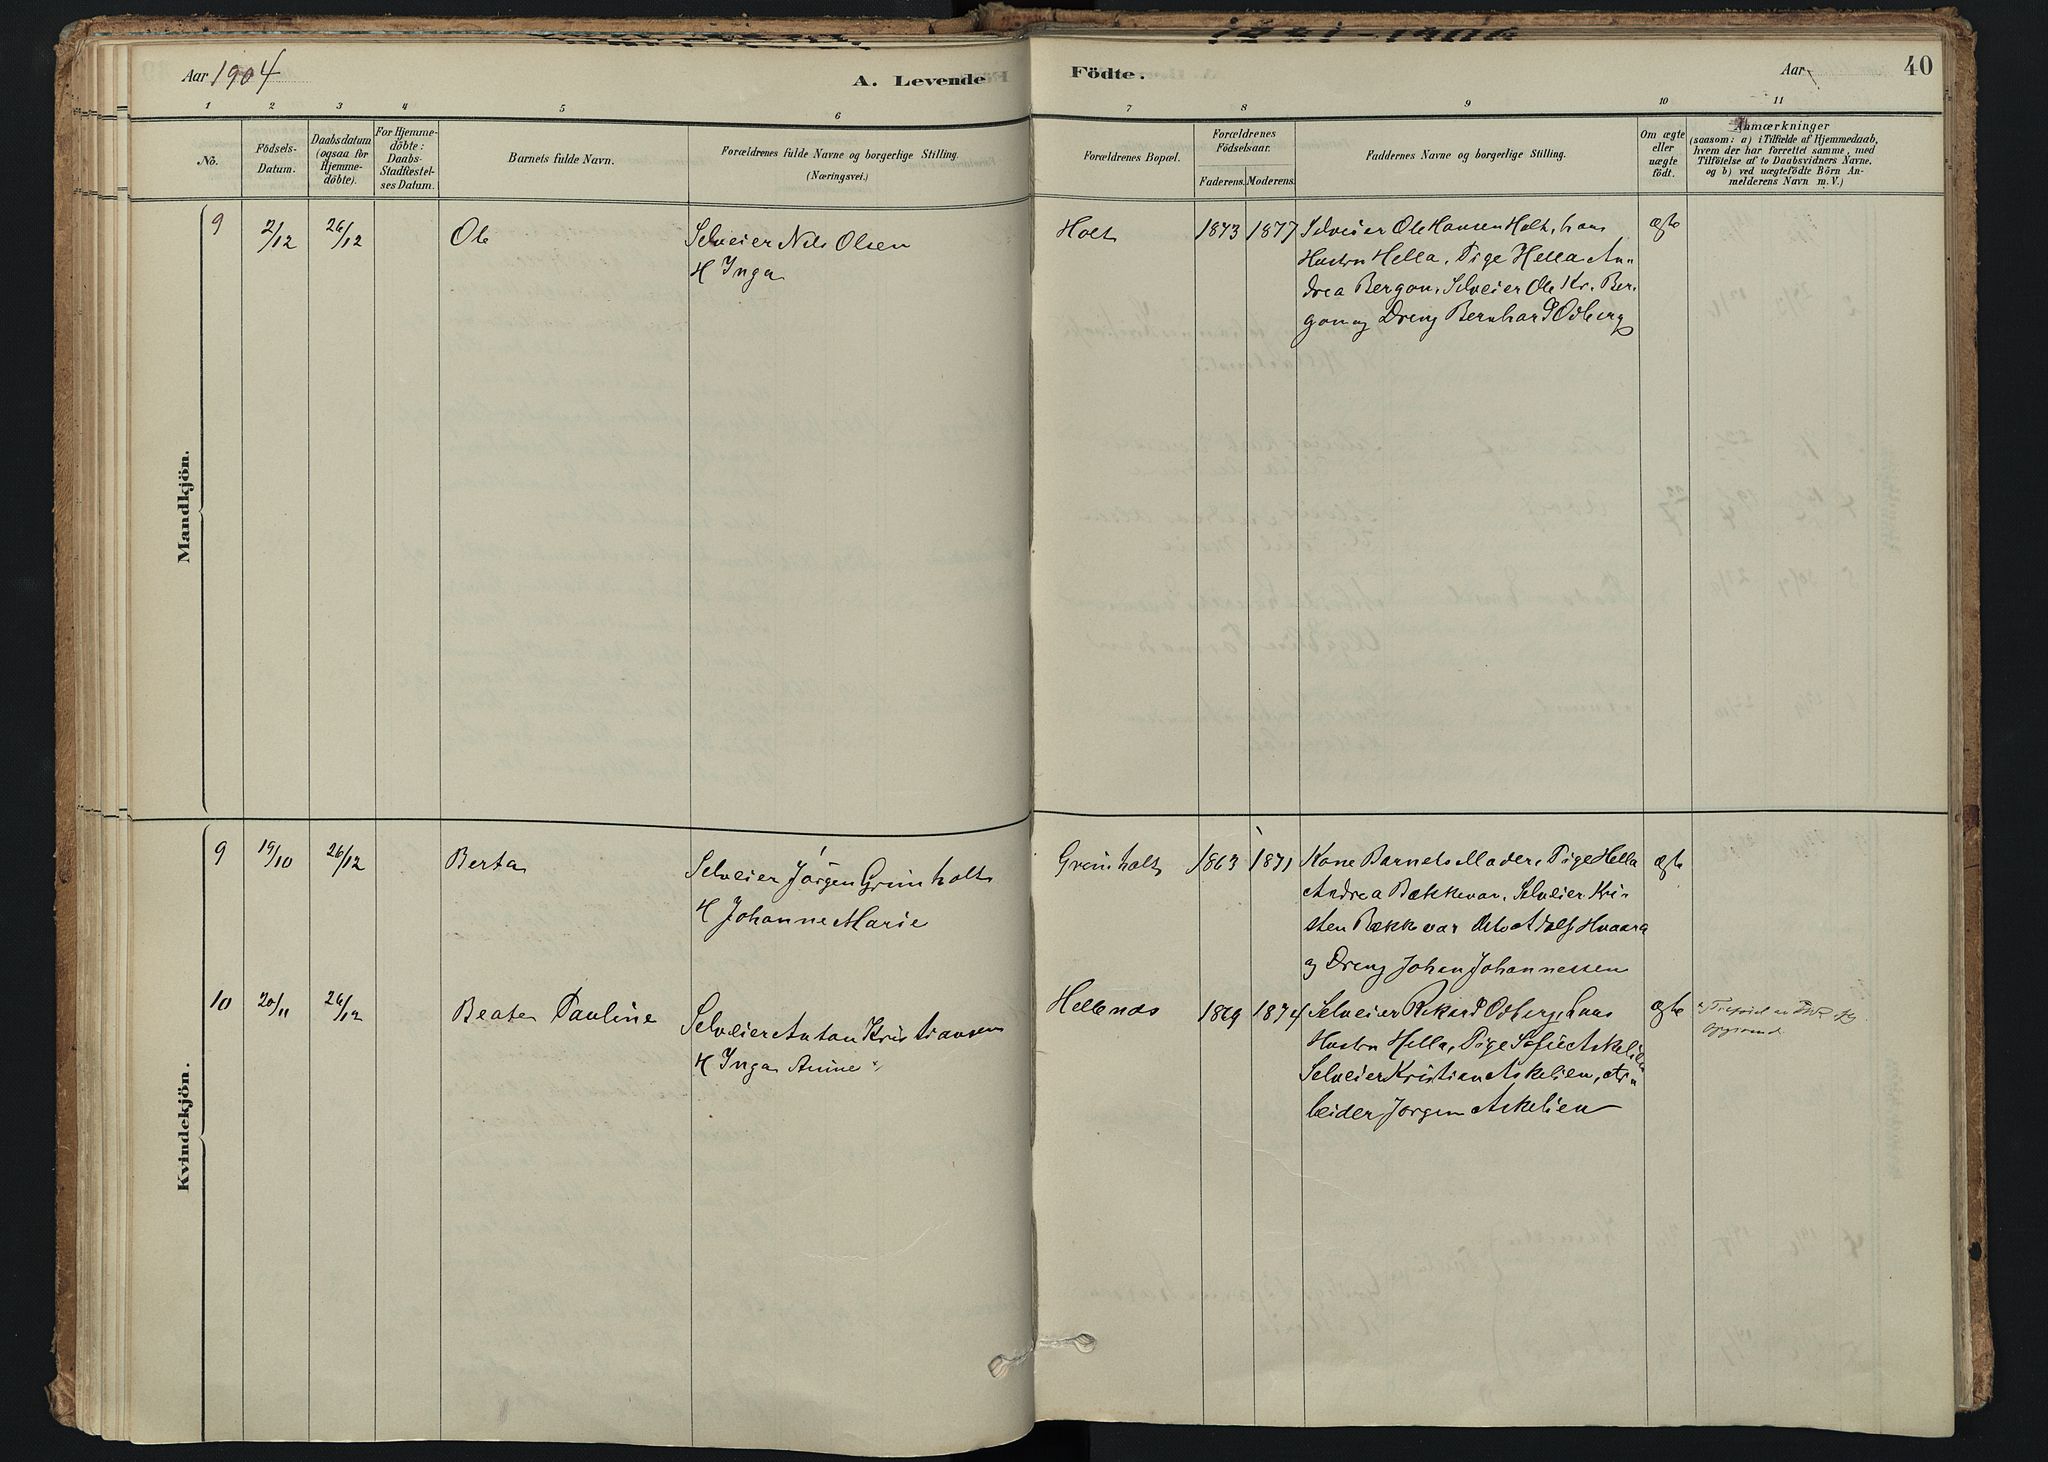 Aar 1904
A. Levende
Födte.
Aar
40
1 2 3 4 5 6 7 8 9 10 11
No.
Födsels-
Datum.
Daabsdatum
(ogsaa for
Hjemme-
döbte).
For Hjemme-
döbte:
Daabs-
Stadfæstel-
ses Datum.
Barnets fulde Navn.
Forældrenes fulde Navne og borgerlige Stilling.
(Næringsvei.)
Forældrenes Bopæl.
Forældrenes
Födselsaar.
Faderens. Moderens.
Faddernes Navne og borgerlige Stilling.
Om ægte
eller
uægte
födt.
Anmærkninger
(saasom: a) i Tilfælde af Hjemmedaab,
hvem der har forrettet samme, med
Tilföielse af to Daabsvidners Navne,
og b) ved uægtefödte Börn An-
melderens Navn m. V.)
Mandkjön.
9 2/12 26/12 Ole Selveier Nils Olsen Holt 1873 1877 Selveier Ole Hansen Holt, hans ægte
H Inga Hustru Hella, Pige Hella An-
drea Bergan, Selveier Ole Kr. Ber-
gan og Dreng Bernhard Odberg
Kvindekjön.
9 19/10 26/12 Berta Selveier Jörgen Grimholt Grimholt 1863 1871 Kone Barnets Moder, Pige Hella ægte
H Johanne Marie Andrea Bækkevar, Selveier Kri-
sten Bækkevar Adolf Hvaara
og Dreng Johan Johannessen
10 20/11 26/12 Beate Pauline Selveier Anton Kristiansen Hellenes 1869 1874 Selveier Rikard Odberg, hans ægte
H Inga Anine Hustru Hella, Pige Sofie Askelien
Selveier Kristian Askelien, Ar-
beider Jörgen Askelien